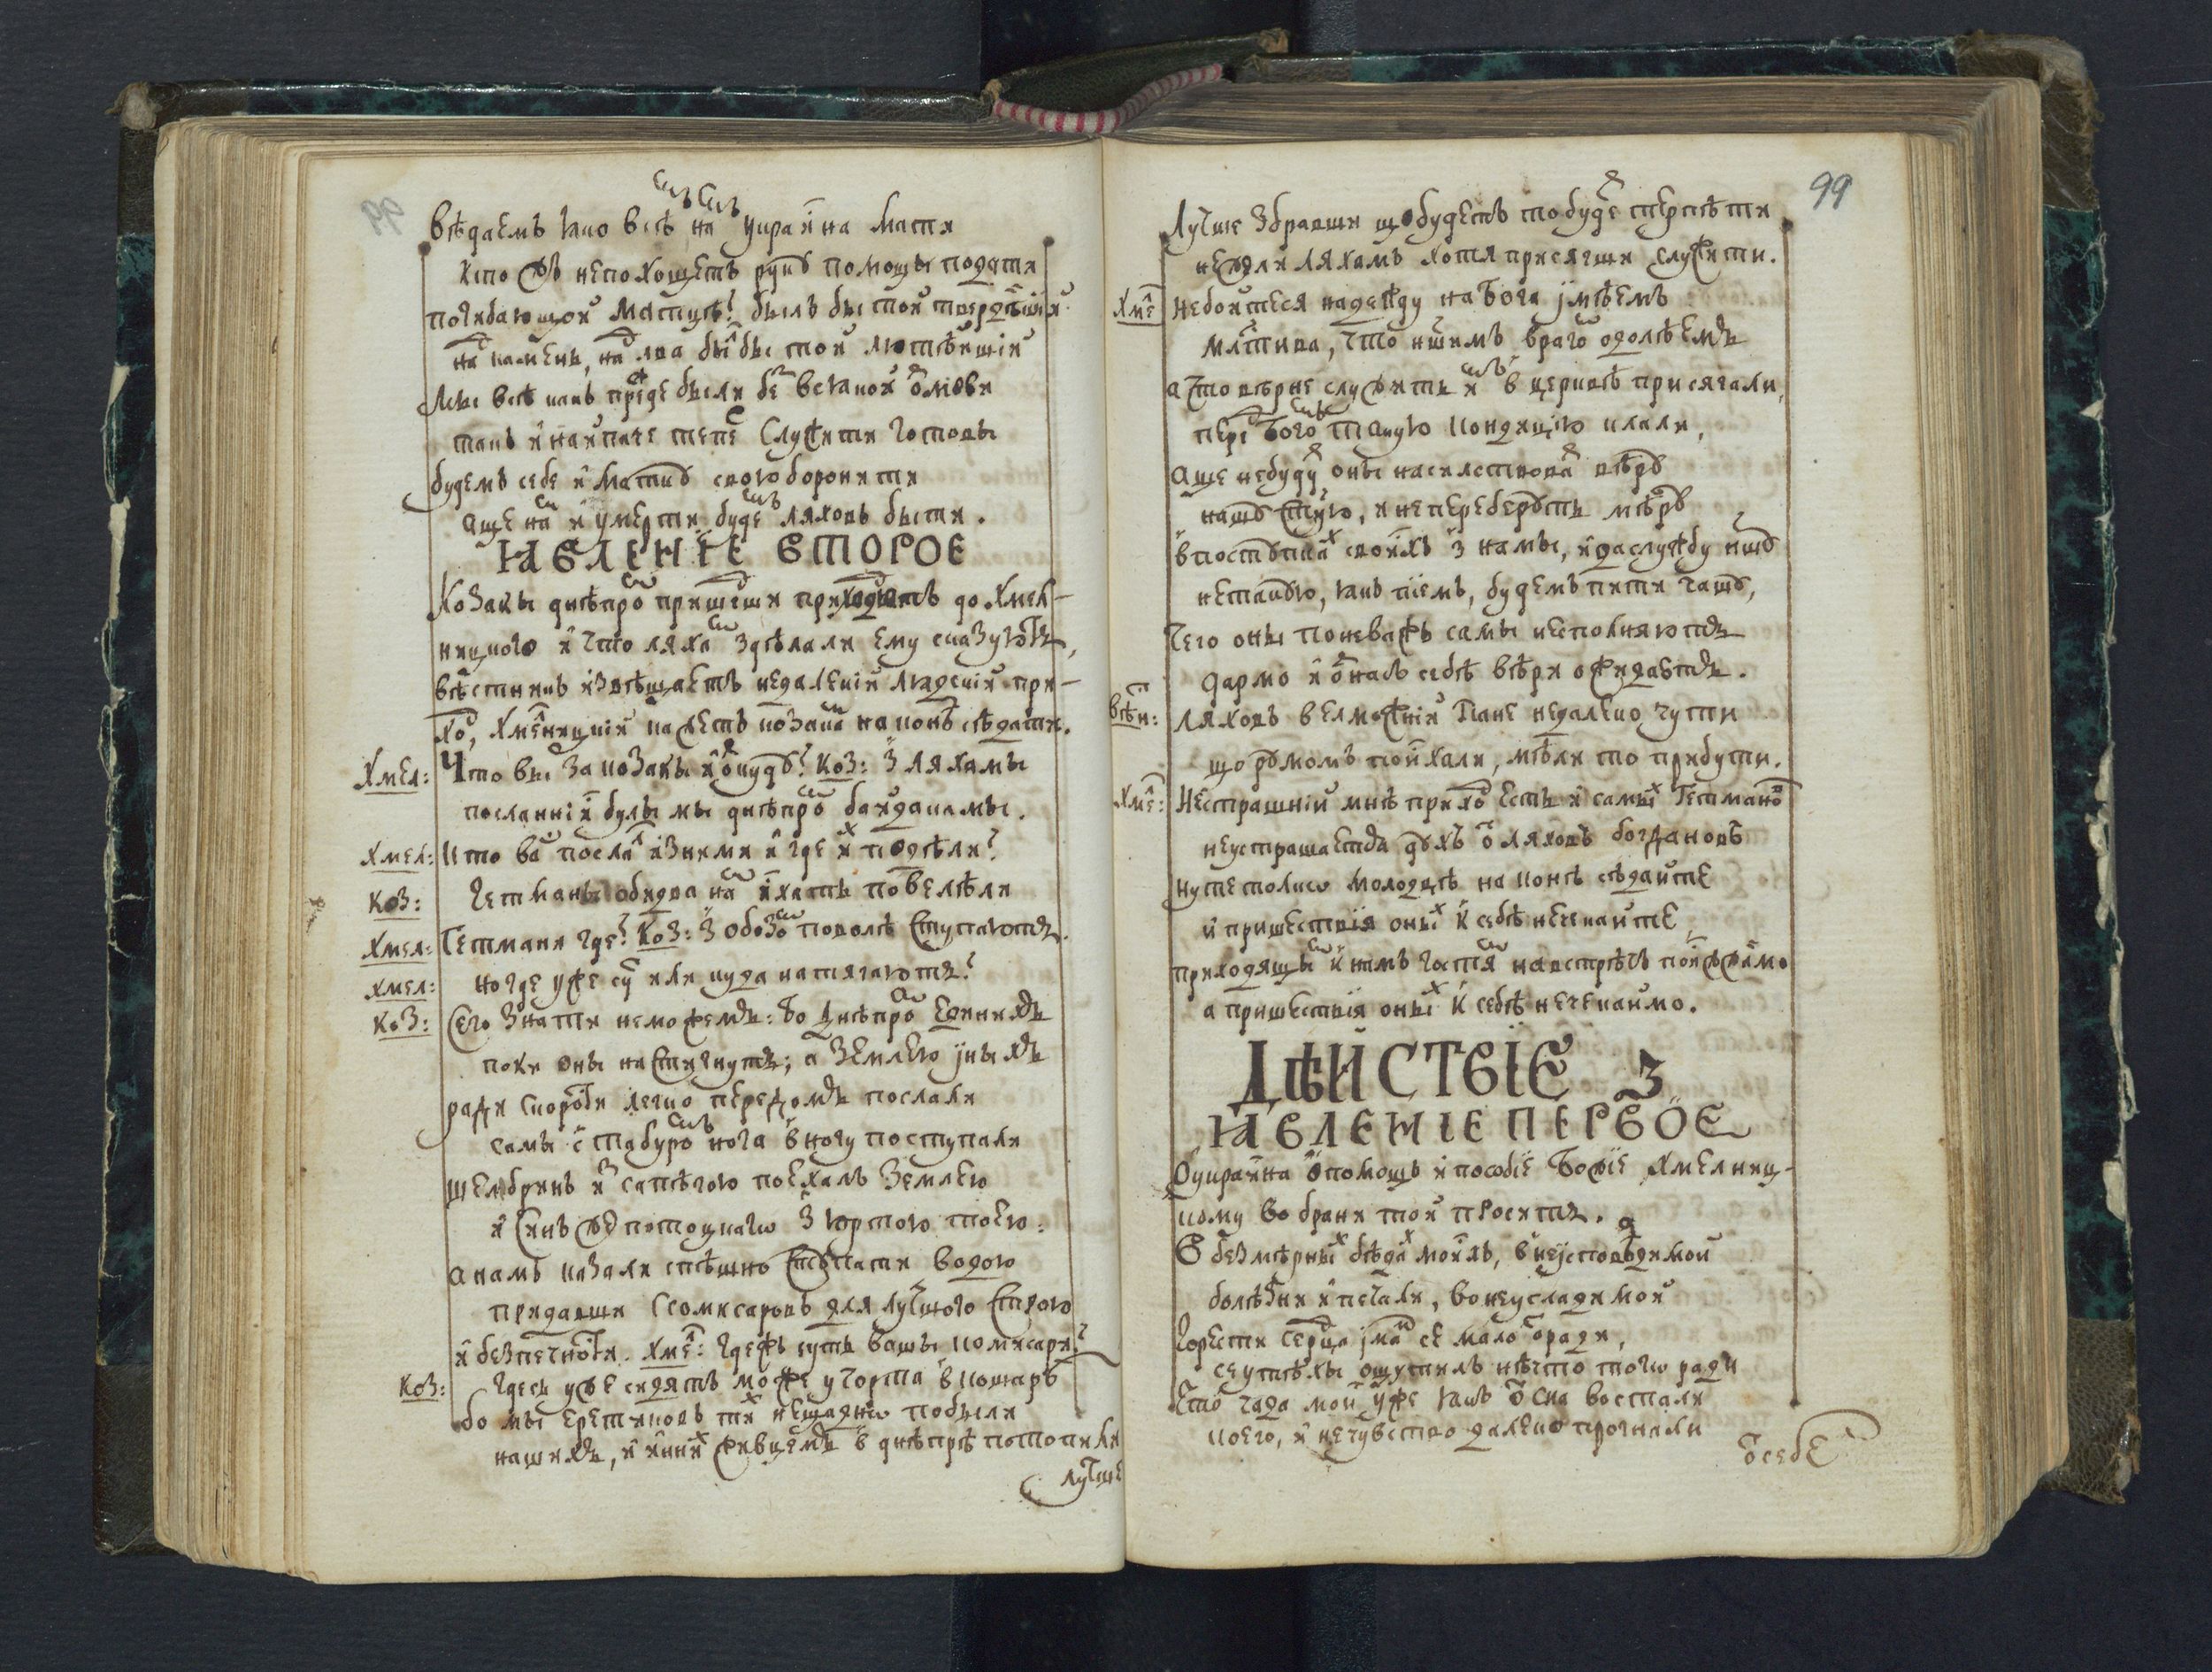 Вѣдаемъ яко всѣ намъ Украйна Мати
Кто жъ не похощетъ рукѣ помощы подати
погибающой матцѣ? былъ бы той твердѣйшій
надъ камень, надъ лва былъ бы той лютѣйшій
Мы всѣ какъ прежде были без всякой отмови
такъ и наипаче тепер служити готовы
будемъ себе и Матку свою боронити
Аще намъ и умерти буде ляховъ бити.
ЯВЛЕНІЕ ВТОРОЕ
Козакы днѣпромъ пришедши приходятъ до Хмел-
ницкого и что ляхамъ здѣлали ему сказуютъ,
вѣстникъ извѣщаетъ недалекій лядскій при-
ход, Хмелницкій кажетъ козакамъ на конь сѣдати.
Хмел: Что вы за козакы и откуду? Коз: З ляхамы
посланній булы мы днѣпромъ байдакамы.
Хмел: Кто вас послал изними и где их подѣли?
Коз: Гетманы обидва намъ ихать повелѣли
Хмел: Гетмани где? Коз: З обозомъ поволѣ ступаютъ.
Хмел: Но где уже сут или куда натягаютъ?
Коз: Сего знати неможемъ: бо Днѣпромъ единихъ
поки оны настигнутъ; а землею иныхъ
ради скорости легко передомъ послали
самы с таборомъ нога в ногу поступали
Шембрикъ и з сапѣгою поехалъ землею
и синъ жъ потоцкаго з юртою тоею:
а намъ казали спѣшно ступати водою
придавши Ссомисаровъ для лутшого строю
и безпечности. Хме: Гдежъ суть вашы комисари?
Коз: Гдесь уже сидятъ може у чорта в кошарѣ
бо мы еретиковъ тих нещадно побили
нашихъ, и иних живцемъ в днѣпрѣ потопили
лутше
99
Лутше збравши що будетъ то будет терпѣти
нежели ляхамъ хотя присягши служити.
Хме Небойтеся надежду на Бога имѣемъ
млстива, что ншимъ врагом одолѣемъ
а что вѣрне служить им в церквѣ присягали,
пред Богом такую кондицію клали,
Аще небудут оны насилствоват вѣру
нашу стую, и не переберутъ мѣру
в поступках своихъ з намы, и за службу ншу
не такую, якъ піемъ, будемъ пити чашу,
Чего оны поневажъ самы неполняютъ
дармо и от насъ себѣ вѣри ожидаютъ.
Вѣст: Ляховъ велможній Пане недалеко чути
що румомъ пойхали, мѣли то прибути.
Хме: Нестрашній мнѣ приход есть и самых Гетманов
неустрашается духъ от ляховъ богдановъ
нуте толко молодцѣ на конѣ сѣдайте
и пришествія оных к себѣ нечекайте
приходящым к намъ гостям навстрѣчъ поижжаймо
а пришествія оных к себѣ нечекаймо.
ДѢЙСТВІЕ 3
ЯВЛЕНІЕ ПЕРВОЕ
Украйна о помощъ и пособіе Божіе Хмелниц-
кому во брани той проситъ.
В безмѣрных бѣдах моихъ, в неисповѣдимой
болѣзни и печали, во неусладимой
горести сердца имам се мало отради,
се утѣхы ощутилъ нѣчто того ради
Что чада мои уже якъ от сна востали
коего, и нечувство далеко прогнали
от себе